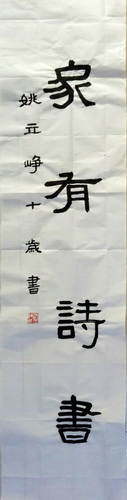 家有詩書
姚立崢十歲書